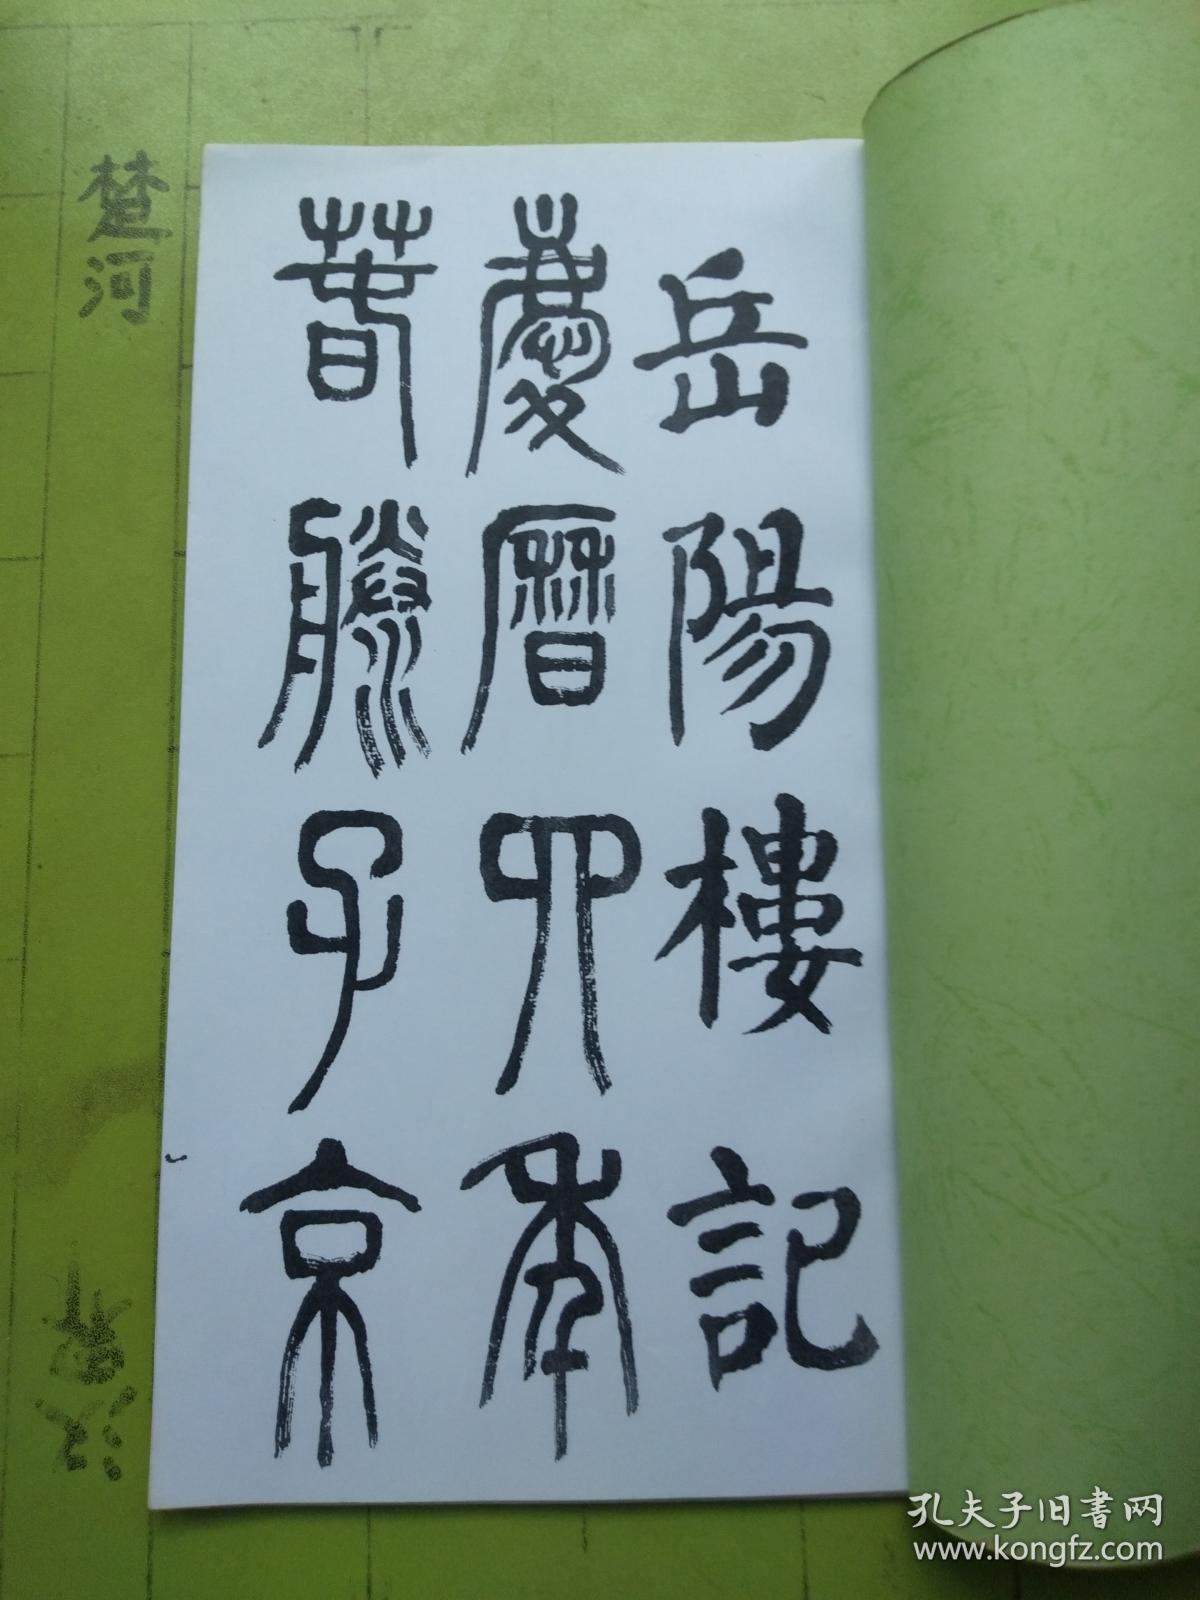 岳陽樓記
慶曆四年
春滕子京
楚河
汉界
孔夫子旧書网
www.kongfz.com